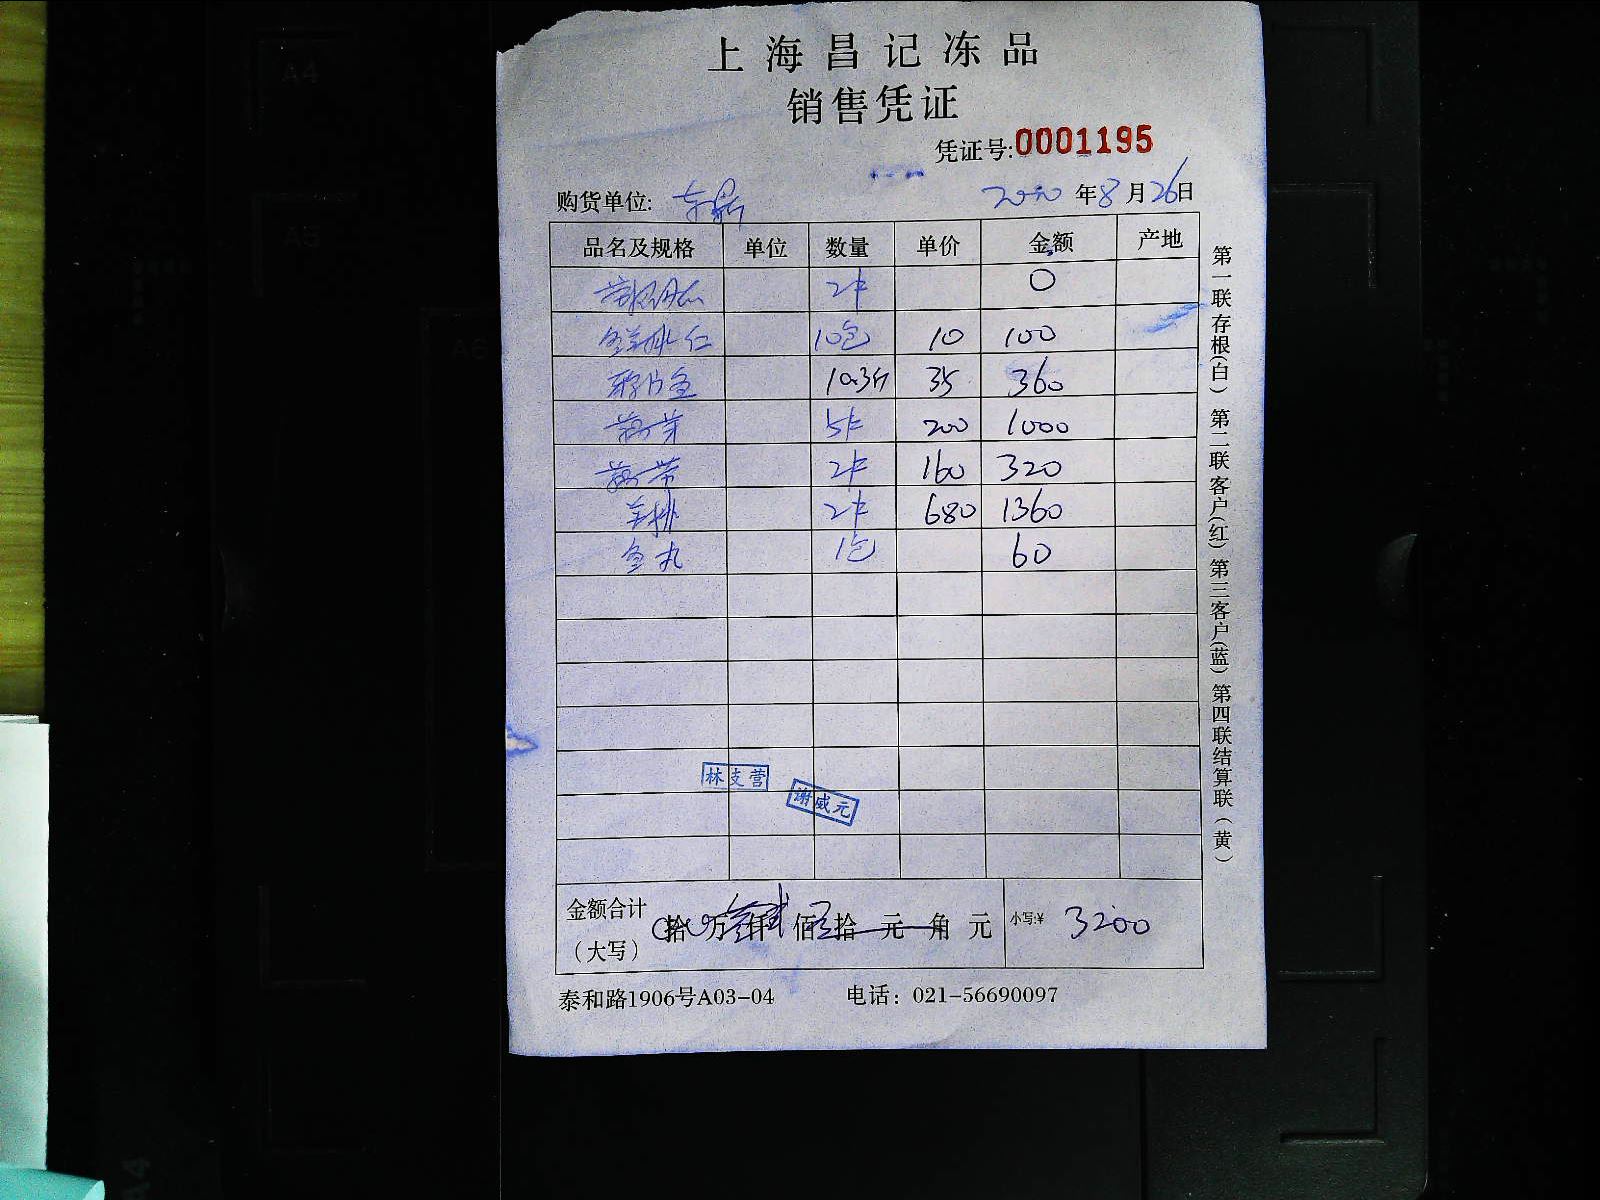 上海昌记冻品
销售凭证
凭证号:0001195
购货单位: 2020年8月26日
品名及规格 单位 数量 单价 金额 产地
2卡 0
10包 10 100
10.3斤 35 360
5卡 200 1000
2卡 160 320
羊排 2卡 680 1360
鱼丸 1包 60
林支营
谢威元
金额合计(大写) 拾 万 仟 佰 拾 元 角 元 小写:¥ 3200
泰和路1906号A03-04 电话：021-56690097
第一联存根(白) 第二联客户(红) 第三客户(蓝) 第四联结算联(黄)
A4
A5
A6